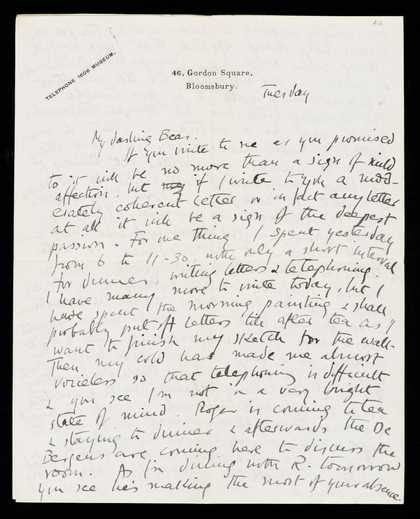 TELEPHONE 1608 MUSEUM.
46, Gordon Square,
Bloomsbury.
Tuesday
My darling Bear.
If you write to me as you promised
to it will be no more than a sign of mild
affection but if I write to you a mod-
erately coherent letter or in fact any letter
at all it will be a sign of the deepest
passion. For one thing I spent yesterday
from 6 to 11-30, with only a short interval
for dinner, writing letters & telephoning.
I have many more to write today, but I
have spent the morning painting & shall
probably put off letters till after tea as I
want to finish my sketch for the wall.
Then, my cold has made me almost
voiceless so that telephoning is difficult
& you see I'm not in a very bright
state of mind. Roger is coming to tea
& staying to dinner & afterwards the De
Bergens are coming here to discuss the
room. As I'm dining with R. tomorrow
you see he's making the most of your absence.